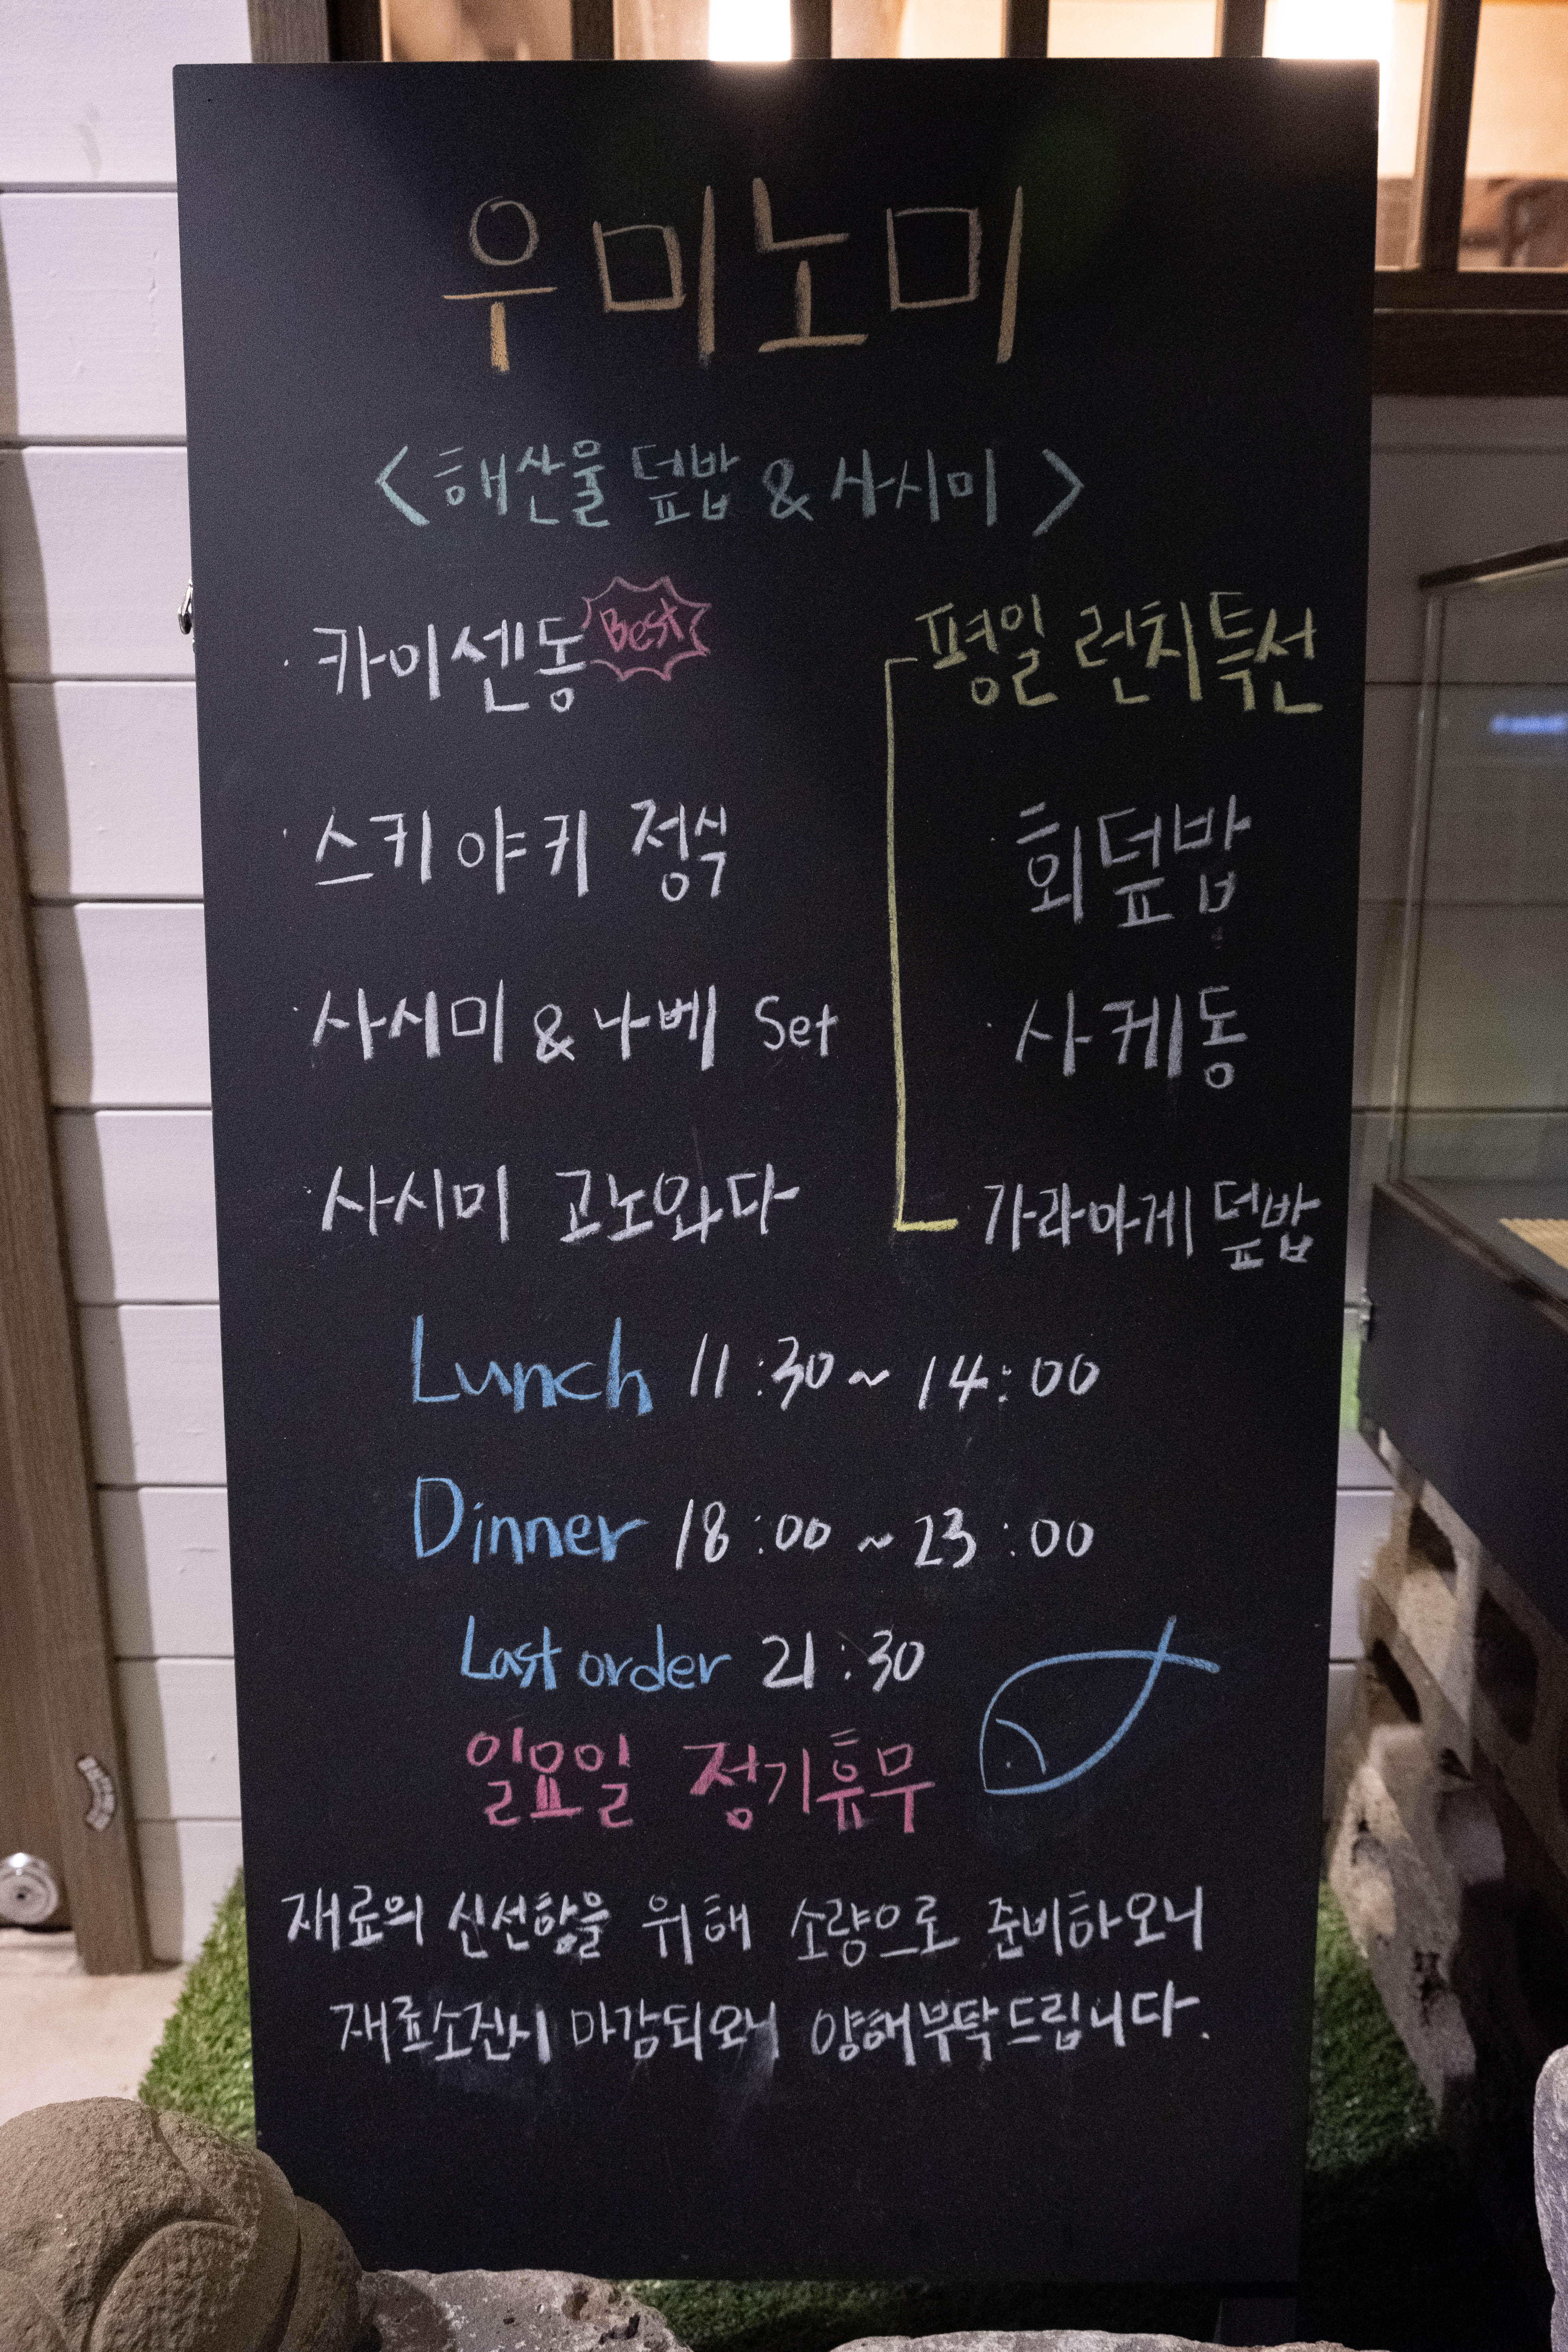 우미노미
<해산물 덮밥 & 사시미>
· 카이센동 Best
· 스키야키 정식
· 사시미 & 나베 Set
· 사시미 고노와다
평일 런치특선
· 회덮밥
· 사케동
· 가라아게 덮밥
Lunch 11:30~14:00
Dinner 18:00~23:00
Last order 21:30
일요일 정기휴무
재료의 신선함을 위해 소량으로 준비하오니
재료소진시 마감되오니 양해부탁드립니다.